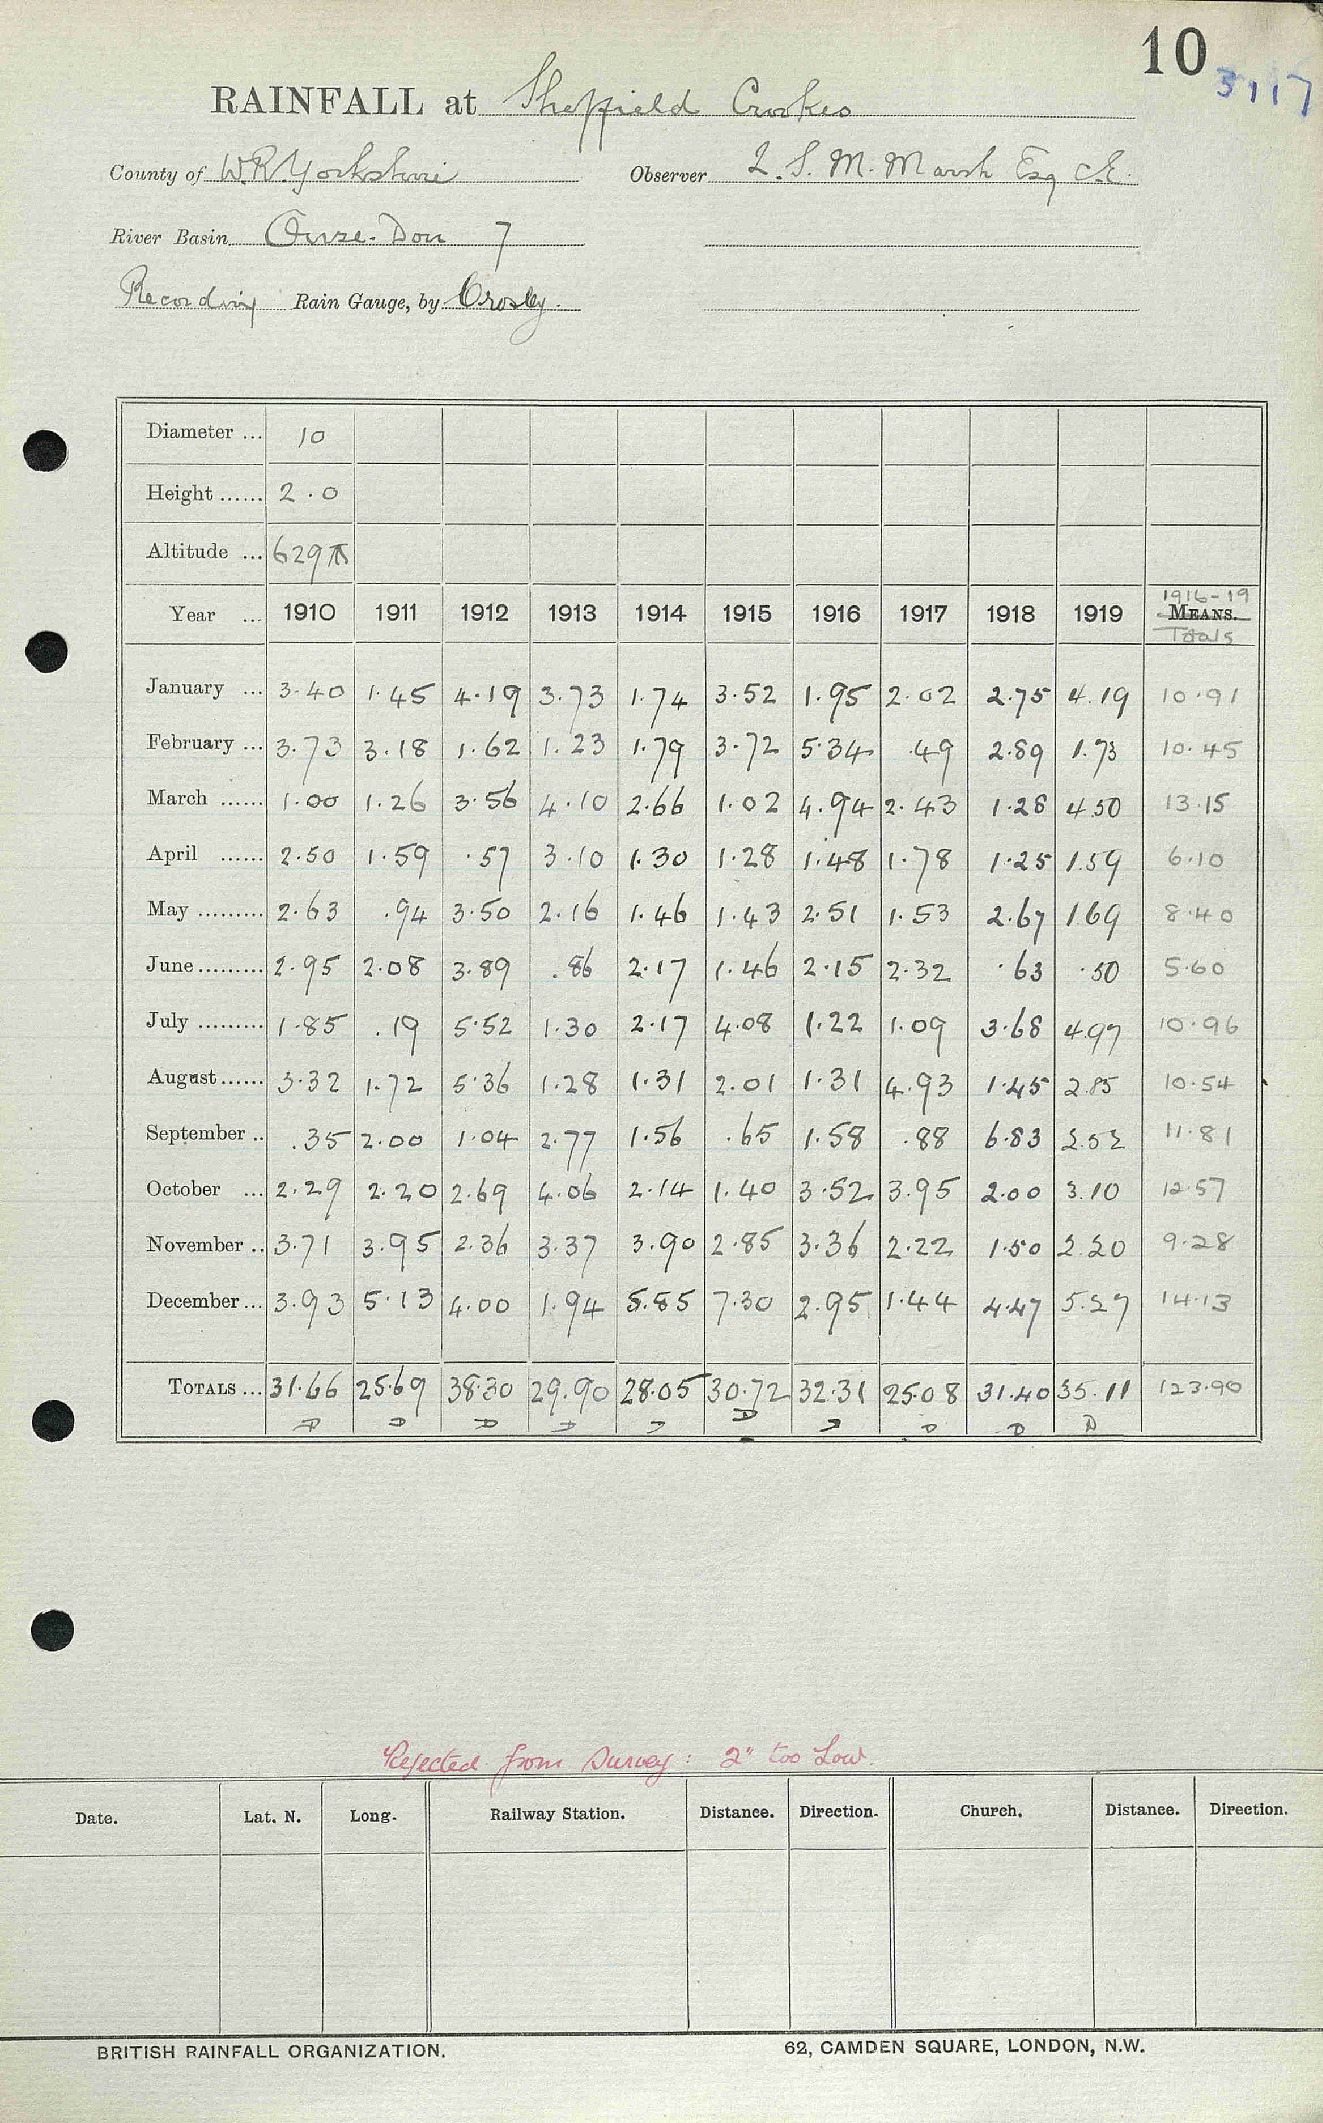 10
3117
RAINFALL at Sheffield Crookes
County of W.R. Yorkshire Observer L. S. M. Marsh Esq C.E.
River Basin Ouse. Don 7
Recording Rain Gauge, by Crosley.
Diameter ... 10
Height ...... 2.0
Altitude ... 629 ft
1916-19
Year ... 1910 1911 1912 1913 1914 1915 1916 1917 1918 1919 MEANS.
Totals
January ... 3.40 1.45 4.19 3.73 1.74 3.52 1.95 2.02 2.75 4.19 10.91
February ... 3.73 3.18 1.62 1.23 1.79 3.72 5.34 .49 2.89 1.73 10.45
March ...... 1.00 1.26 3.56 4.10 2.66 1.02 4.94 2.43 1.28 4.50 13.15
April ...... 2.50 1.59 .57 3.10 1.30 1.28 1.48 1.78 1.25 1.59 6.10
May ......... 2.63 .94 3.50 2.16 1.46 1.43 2.51 1.53 2.67 1.69 8.40
June ......... 2.95 2.08 3.89 .86 2.17 1.46 2.15 2.32 .63 .50 5.60
July ......... 1.85 .19 5.52 1.30 2.17 4.08 1.22 1.09 3.68 4.97 10.96
August ...... 3.32 1.72 5.36 1.28 1.31 2.01 1.31 4.93 1.45 2.85 10.54
September .. .35 2.00 1.04 2.77 1.56 .65 1.58 .88 6.83 2.52 11.81
October ... 2.29 2.20 2.69 4.06 2.14 1.40 3.52 3.95 2.00 3.10 12.57
November .. 3.71 3.95 2.36 3.37 3.90 2.85 3.36 2.22 1.50 2.20 9.28
December ... 3.93 5.13 4.00 1.94 5.85 7.30 2.95 1.44 4.47 5.27 14.13
TOTALS ... 31.66 25.69 38.30 29.90 28.05 30.72 32.31 25.08 31.40 35.11 123.90
Rejected from Survey: 2" too Low.
Date. Lat. N. Long. Railway Station. Distance. Direction. Church. Distance. Direction.
BRITISH RAINFALL ORGANIZATION. 62, CAMDEN SQUARE, LONDON, N.W.